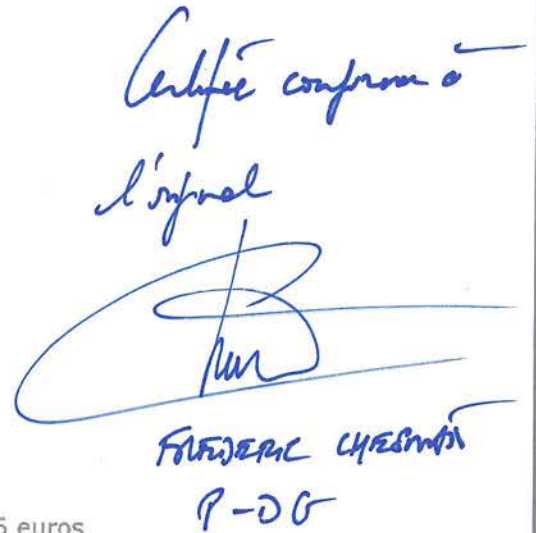 Certifié conforme à
l'original
FREDERIC CHESNAIS
P-DG
euros